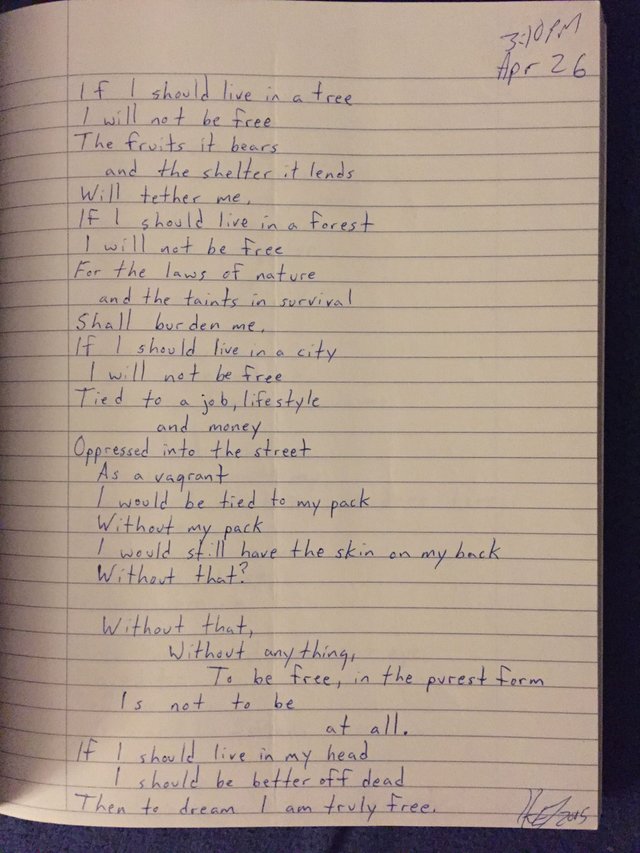 3:10 PM
Apr 26
If I should live in a tree
I will not be free
The fruits it bears
and the shelter it lends
Will tether me,
If I should live in a forest
I will not be free
For the laws of nature
and the taints in survival
Shall burden me,
If I should live in a city
I will not be free
Tied to a job, lifestyle
and money
Oppressed into the street
As a vagrant
I would be tied to my pack
Without my pack
I would still have the skin on my back
Without that?
Without that,
Without anything,
To be free, in the purest form
Is not to be
at all.
If I should live in my head
I should be better off dead
Then to dream I am truly free.
2015